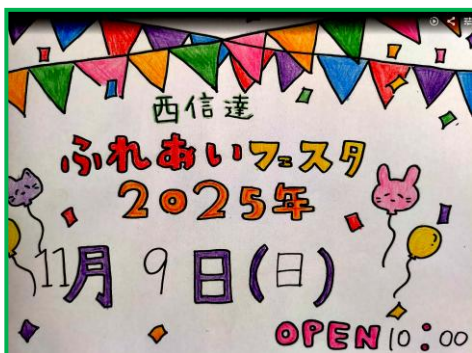 西信達
ふれあいフェスタ
2025年
11月9日(日)
OPEN 10:00